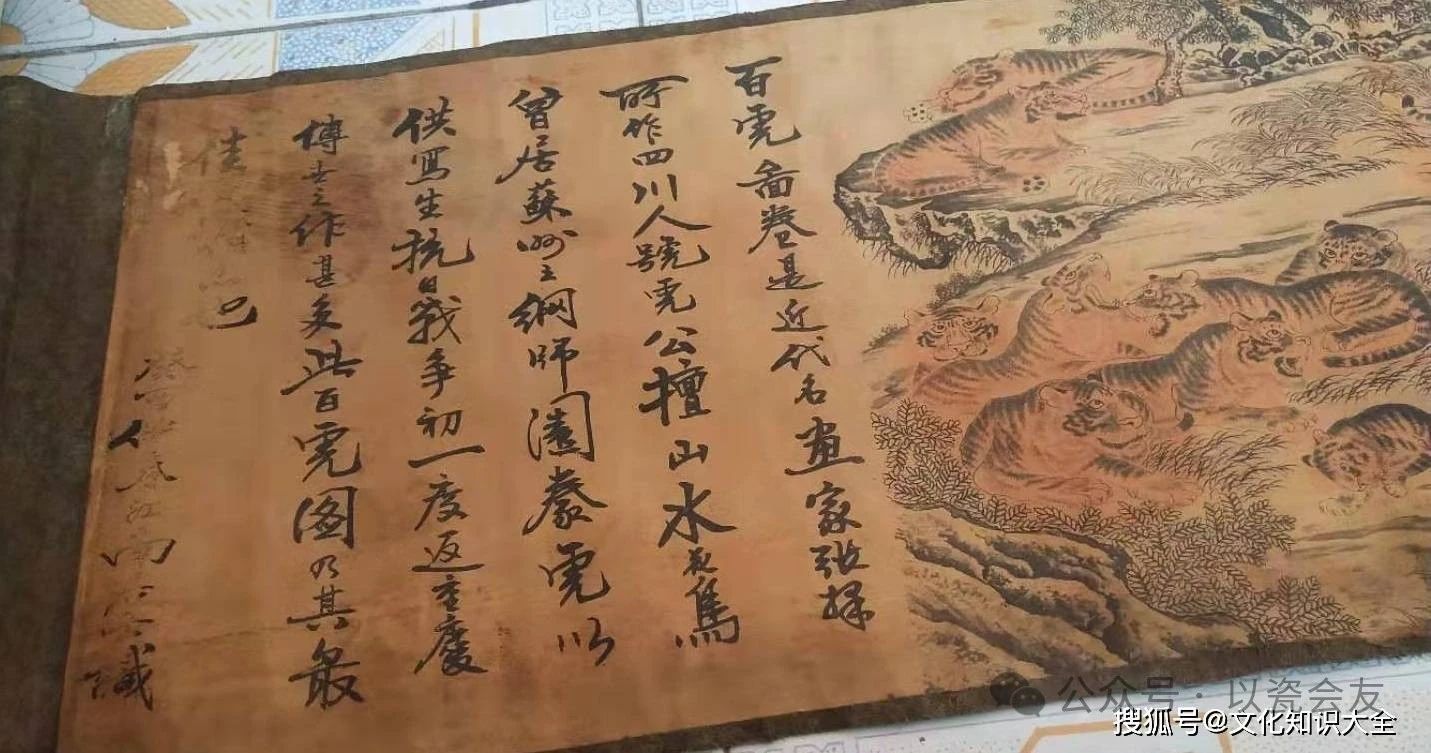 百虎啚卷是近代名畫家張择
所作四川人號虎公擅山水花鳥
曾居蘇州之網師園豢虎以
供寫生抗日戰争初一度返重慶
傳世之作甚多此百虎图乃其最
佳
識
公众号·以瓷会友
搜狐号@文化知识大全